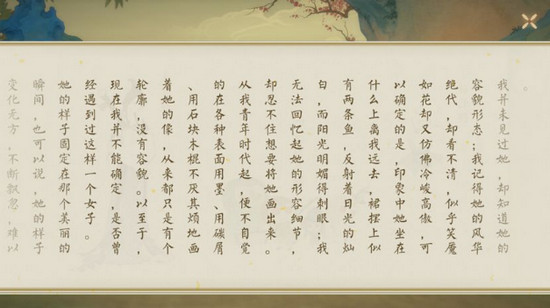 我并未见过她，却知道她的
容貌形态；我记得她的风华
绝代，却看不清，似乎笑靥
如花却又仿佛冷峻高傲，可
以确定的是，印象中她坐在
什么上离我远去，裙摆上似
有两条鱼，反射着日光的灿
白，而阳光明媚得刺眼；我
无法回忆起她的形容细节，
却忍不住想要将她画出来。
从我青年时代起，便不自觉
的在各种表面用墨、用碳屑
、用石块木棍不厌其烦地画
着她的像，从来都只是有个
轮廓，没有容貌。以至于，
现在我并不能确定，是否曾
经遇到过这样一个女子。
她的样子固定在那个美丽的
瞬间，也可以说，她的样子
变化无方，不断飘忽，难以